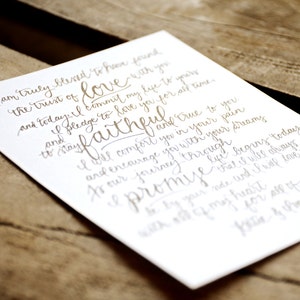 am truly blessed to have found
the trust of love with you
and today I commit my life to yours
and I pledge to love you for all time.
to stay faithful and true to you
I will comfort you in your pain
and encourage you with your dreams
our journey through life begins today
I promise that I will always
be by your side and I will
with all of my heart for all